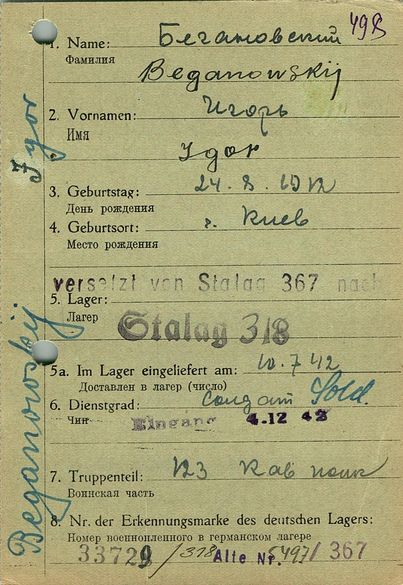 498
1. Name: Бегановский
Фамилия
Beganowskij
2. Vornamen: Игорь
Имя
Igor
3. Geburtstag: 24. 8. 1912
День рождения
4. Geburtsort: г. Киев
Место рождения
versetzt von Stalag 367 nach
5. Lager:
Лагер
Stalag 318
5a. Im Lager eingeliefert am: 10.7 42
Доставлен в лагер (число)
6. Dienstgrad: солдат Sold.
Чин
Eingang 4.12 42
7. Truppenteil: 123 Кав полк
Воинская часть
8. Nr. der Erkennungsmarke des deutschen Lagers:
Номер военнопленного в германском лагере
33729 / 318 Alte Nr. 5497 / 367
Beganowskij Igor